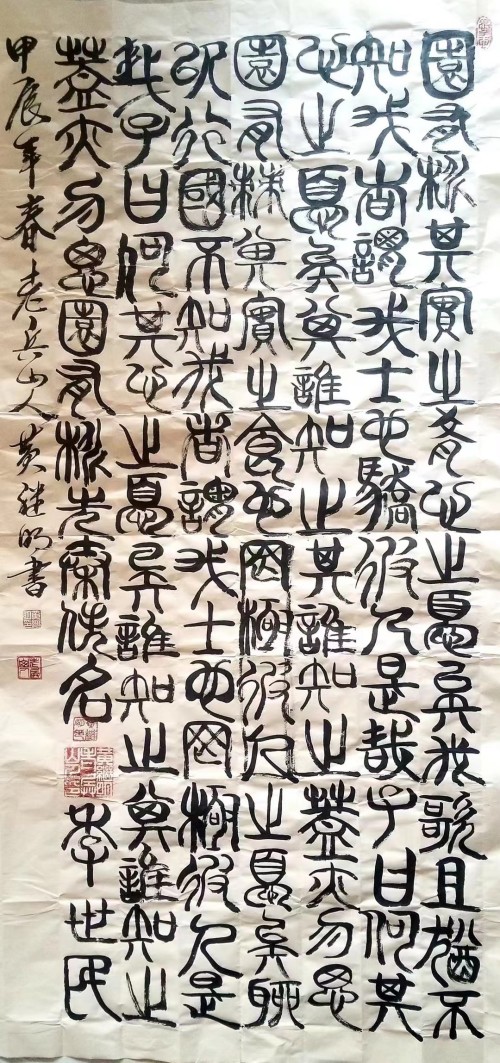 園有桃其實之肴心之憂矣我歌且猶不
知我者謂我士也驕彼人是哉子曰何其
心之憂矣其誰知之其誰知之蓋亦勿思
園有棘其實之食也罔極彼人之憂矣聊
以行國不知我者謂我士也罔極彼人是
哉子曰何其心之憂矣誰知之其誰知之
蓋亦勿思園有桃先秦佚名李世民
甲辰年春老兵山人黄继明書